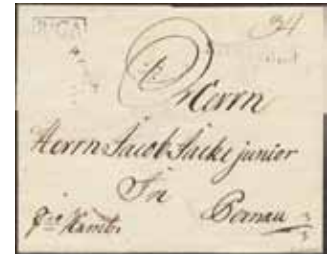 RIGA
34
Herrn
Herrn Jacob Jacke junior
In
Pernau